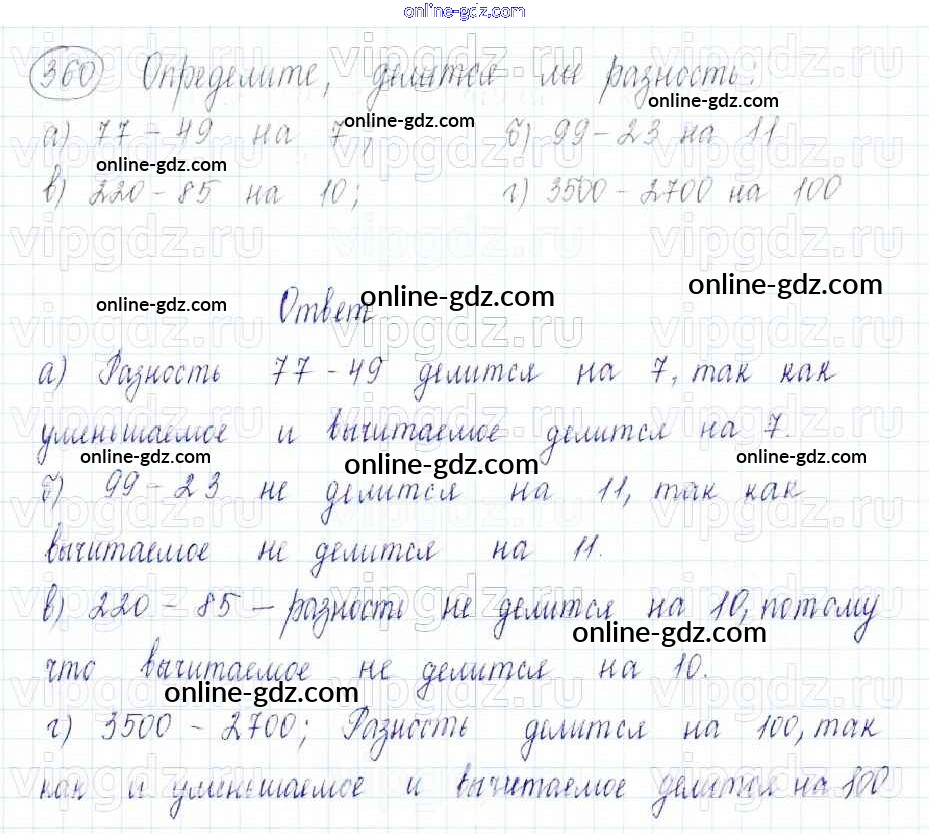 online-gdz.com
360 Определите, делится ли разность:
online-gdz.com
а) 77 - 49 на 7; б) 99 - 23 на 11
online-gdz.com
в) 220 - 85 на 10; г) 3500 - 2700 на 100
vipgdz.ru
online-gdz.com
online-gdz.com Ответ online-gdz.com
а) Разность 77 - 49 делится на 7, так как
уменьшаемое и вычитаемое делится на 7.
online-gdz.com online-gdz.com online-gdz.com
б) 99 - 23 не делится на 11, так как
вычитаемое не делится на 11.
в) 220 - 85 - разность не делится на 10, потому
online-gdz.com
что вычитаемое не делится на 10.
online-gdz.com
г) 3500 - 2700; Разность делится на 100, так
как и уменьшаемое и вычитаемое делятся на 100